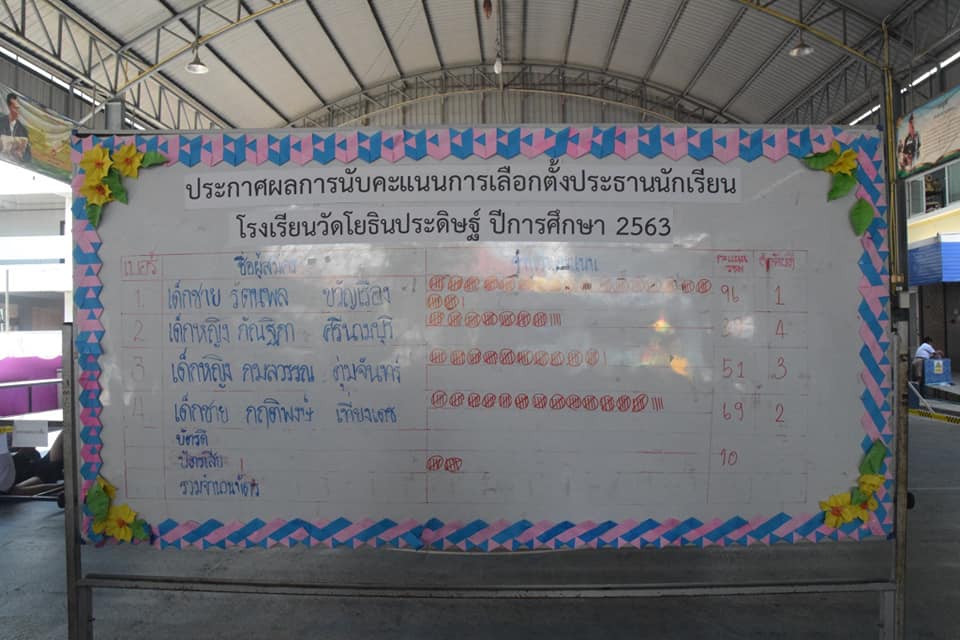 ประกาศผลการนับคะแนนการเลือกตั้งประธานนักเรียน
โรงเรียนวัดโยธินประดิษฐ์ ปีการศึกษา 2563
เบอร์ ชื่อผู้สมัคร คะแนน รวม
1 เด็กชาย รัตนพล ขวัญเรือง 96 1
2 เด็กหญิง ภัณฑิรา ศรีนามบุรี 4
3 เด็กหญิง กมลวรรณ ตุ่มจันทร์ 51 3
4 เด็กชาย กฤติพงษ์ เที่ยงเดช 69 2
บัตรดี
บัตรเสีย 10
รวมจำนวนบัตร